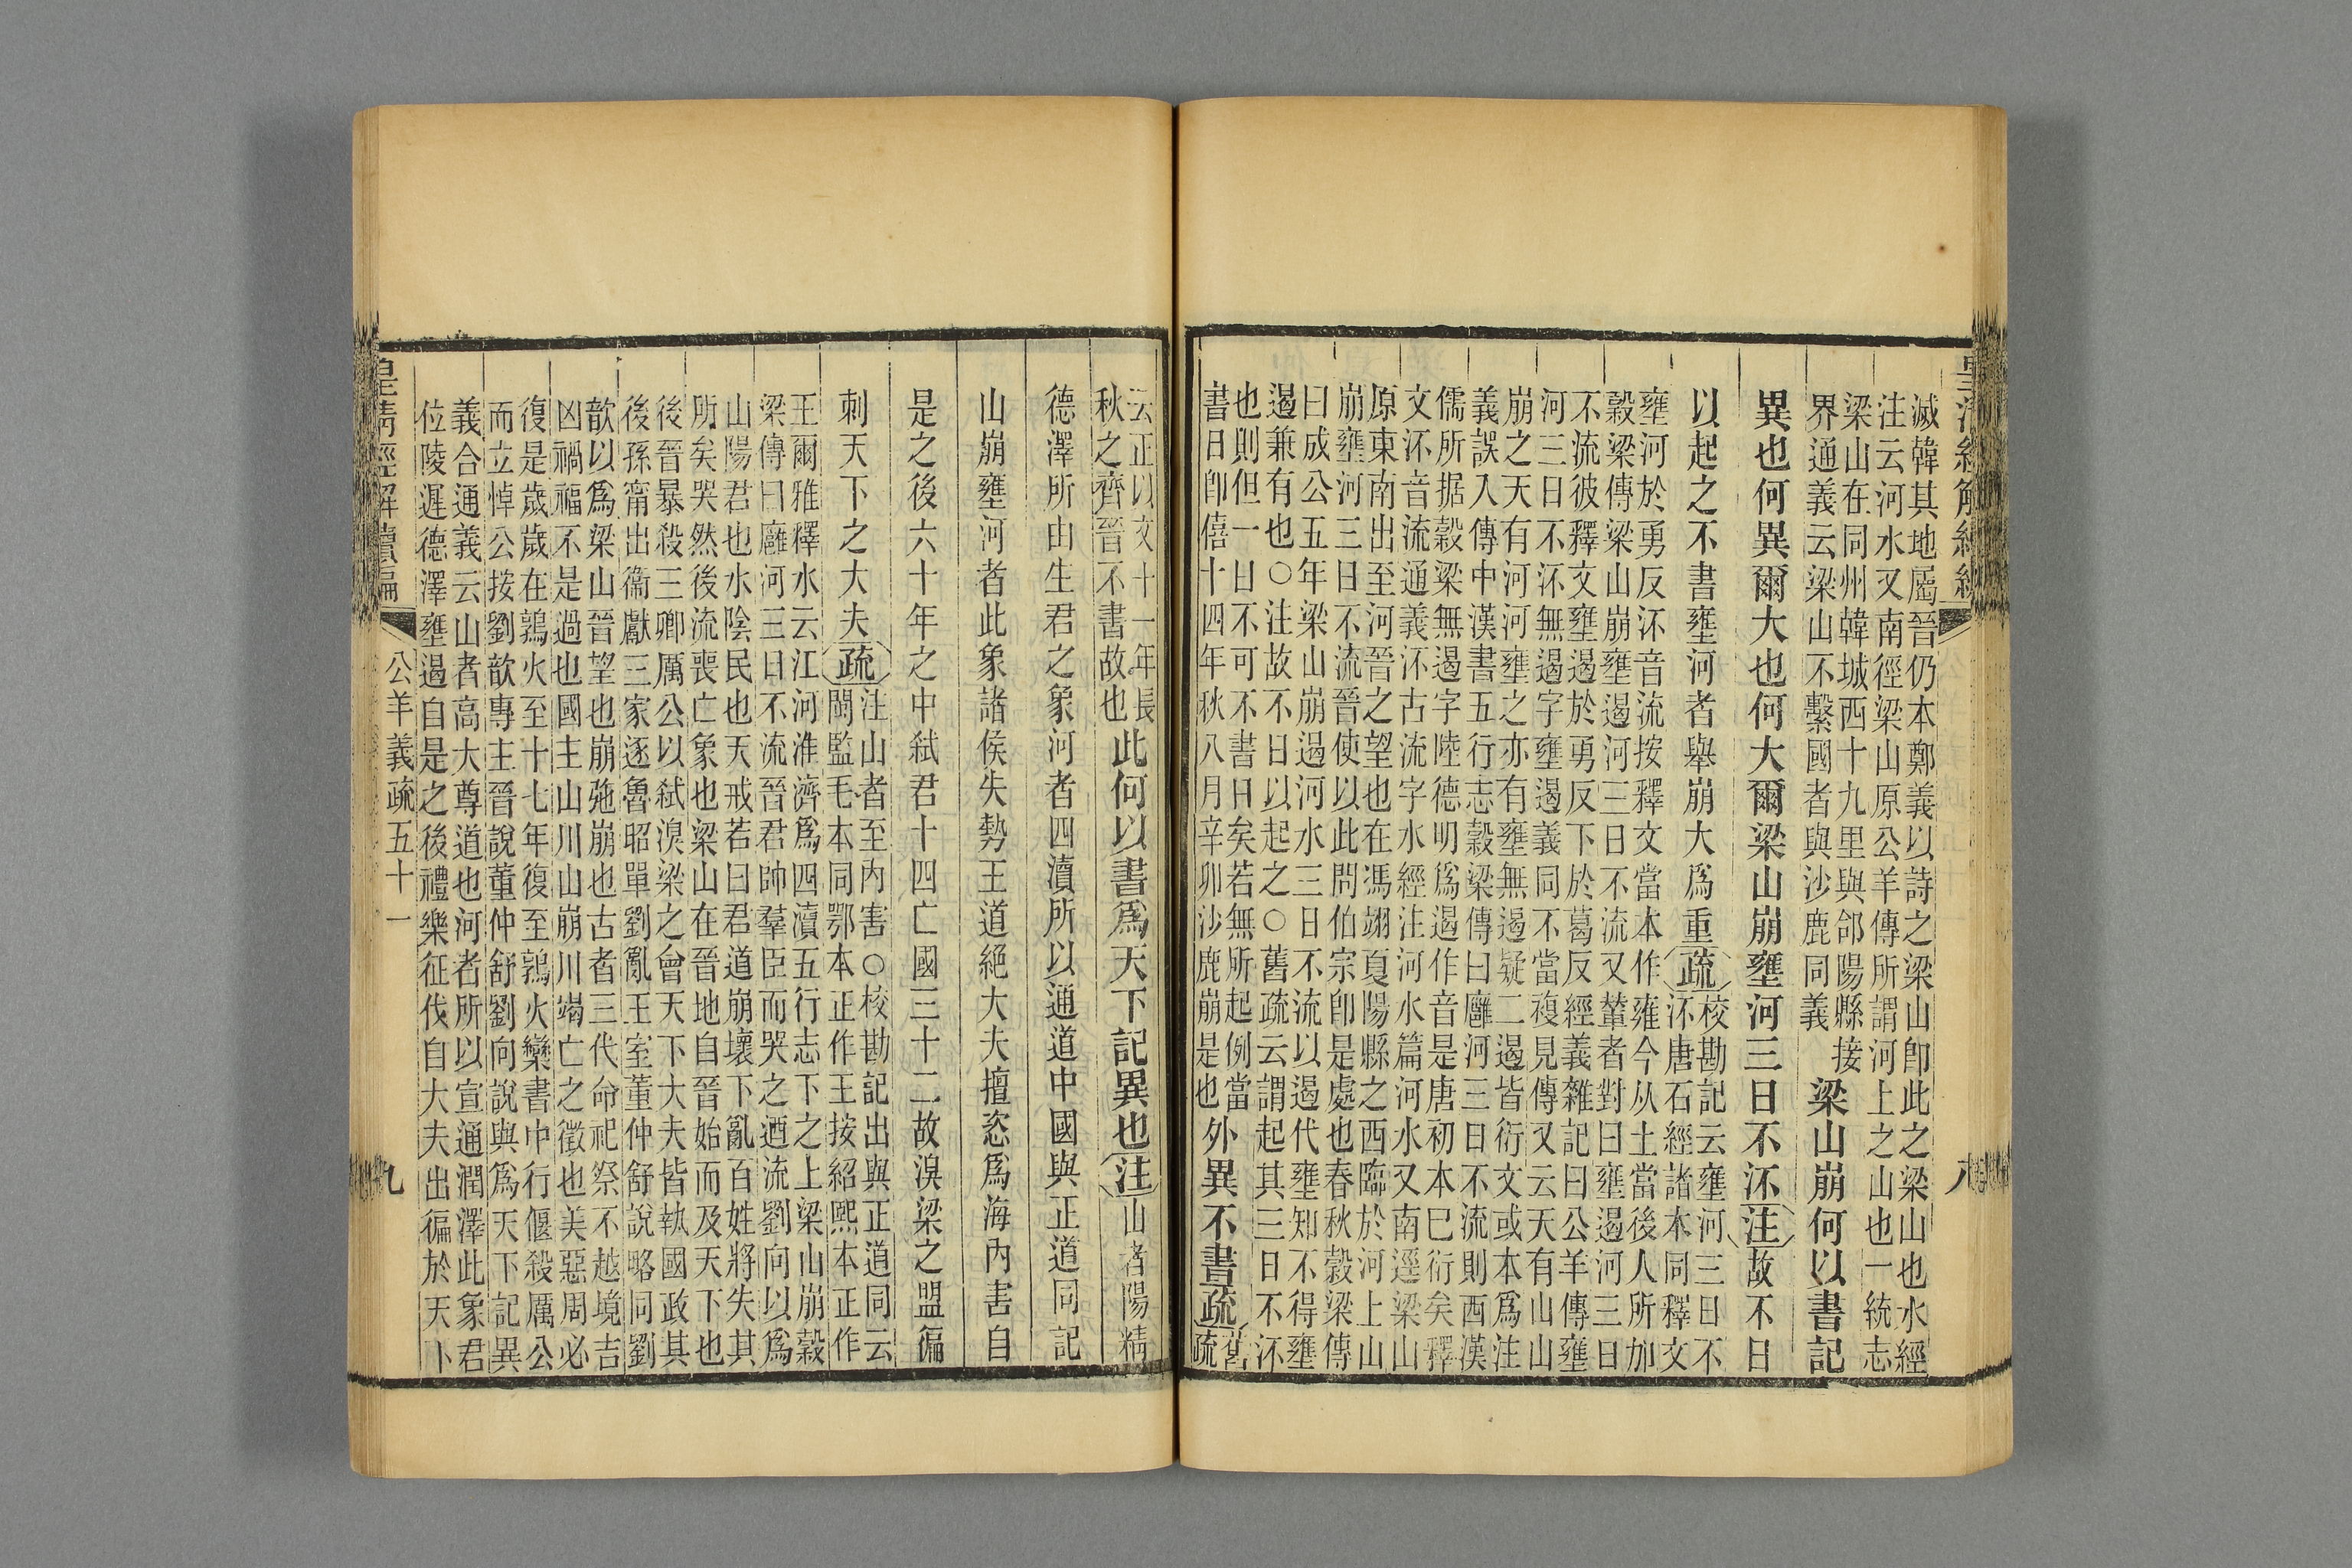 滅韓其地屬晉仍本鄭義以詩之梁山卽此之梁山也水經
注云河水又南徑梁山原公羊傳所謂河上之山也一統志
梁山在同州韓城西十九里與郃陽縣接
界通義云梁山不繫國者與沙鹿同義
梁山崩何以書記
異也何異爾大也何大爾梁山崩壅河三日不㳅注故不日
以起之不書壅河者舉崩大爲重疏
校勘記云壅河三日不
㳅唐石經諸本同釋文
壅河於勇反㳅音流按釋文當本作雍今从土當後人所加
穀梁傳梁山崩壅遏河三日不流又輦者對曰壅遏河三日
不流彼釋文壅遏於勇反下於葛反經義雜記曰公羊傳壅
河三日不㳅無遏字壅遏義同不當複見傳又云天有山山
崩之天有河河壅之亦有壅無遏疑二遏皆衍文或本爲注
義誤入傳中漢書五行志穀梁傳曰廱河三日不流則西漢
儒所据穀梁無遏字陸德明爲遏作音是唐初本已衍矣釋
文㳅音流通義㳅古流字水經注河水篇河水又南逕梁山
原東南出至河晉之望也在馮翊夏陽縣之西臨於河上山
崩壅河三日不流晉使以此問伯宗卽是處也春秋穀梁傳
曰成公五年梁山崩遏河水三日不流以遏代壅知不得壅
遏兼有也○注故不日以起之○舊疏云謂起其三日不㳅
也則但一日不可不書日矣若無所起例當
書日卽僖十四年秋八月辛卯沙鹿崩是也
外異不書疏
舊
疏
云正以文十一年長
秋之齊晉不書故也
此何以書爲天下記異也注山者陽精
德澤所由生君之象河者四瀆所以通道中國與正道同記
山崩壅河者此象諸侯失勢王道絕大夫擅恣爲海內害自
是之後六十年之中弒君十四亡國三十二故溴梁之盟徧
刺天下之大夫疏
注山者至內害○校勘記出與正道同云
閩監毛本同鄂本正作王按紹熙本正作
王爾雅釋水云江河淮濟爲四瀆五行志下之上梁山崩穀
梁傳曰廱河三日不流晉君帥羣臣而哭之迺流劉向以爲
山陽君也水陰民也天戒若曰君道崩壞下亂百姓將失其
所矣哭然後流喪亡象也梁山在晉地自晉始而及天下也
後晉暴殺三卿厲公以弒溴梁之會天下大夫皆執國政其
後孫甯出衞獻三家逐魯昭單劉亂王室董仲舒說略同劉
歆以爲梁山晉望也崩弛崩也古者三代命祀祭不越境吉
凶禍福不是過也國主山川山崩川竭亡之徵也美惡周必
復是歲歲在鶉火至十七年復至鶉火欒書中行偃殺厲公
而立悼公按劉歆專主晉說董仲舒劉向說與爲天下記異
義合通義云山者高大尊道也河者所以宣通潤澤此象君
位陵遲德澤壅遏自是之後禮樂征伐自大夫出徧於天下
皇清經解續編
公羊義疏五十一
九
八